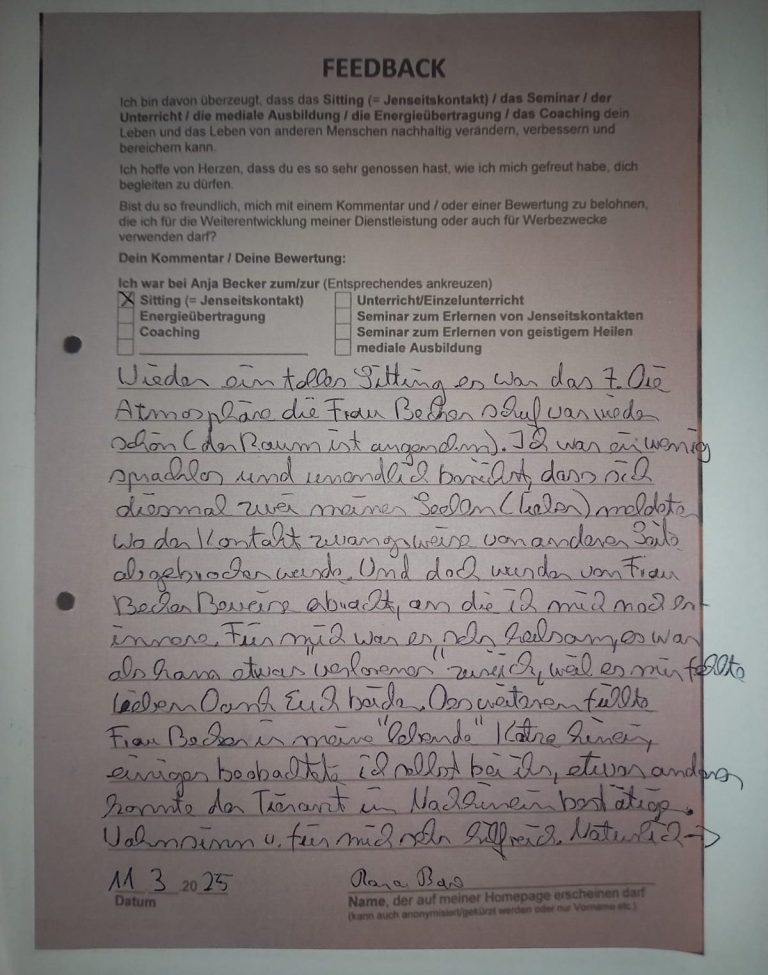 FEEDBACK
Ich bin davon überzeugt, dass das Sitting (= Jenseitskontakt) / das Seminar / der
Unterricht / die mediale Ausbildung / die Energieübertragung / das Coaching dein
Leben und das Leben von anderen Menschen nachhaltig verändern, verbessern und
bereichern kann.
Ich hoffe von Herzen, dass du es so sehr genossen hast, wie ich mich gefreut habe, dich
begleiten zu dürfen.
Bist du so freundlich, mich mit einem Kommentar und / oder einer Bewertung zu belohnen,
die ich für die Weiterentwicklung meiner Dienstleistung oder auch für Werbezwecke
verwenden darf?
Dein Kommentar / Deine Bewertung:
Ich war bei Anja Becker zum/zur (Entsprechendes ankreuzen)
X Sitting (= Jenseitskontakt)
Energieübertragung
Coaching
Unterricht/Einzelunterricht
Seminar zum Erlernen von Jenseitskontakten
Seminar zum Erlernen von geistigem Heilen
mediale Ausbildung
Wieder ein tolles Sitting es war das 7. Die
Atmosphäre die Frau Becker schuf war wieder
schön (der Raum ist angenehm). Ich war ein wenig
sprachlos und unendlich berührt, dass sich
diesmal zwei meiner Seelen (Katzen) meldeten
wo der Kontakt zwangsweise von anderer Seite
abgebrochen wurde. Und doch wurden von Frau
Becker Beweise erbracht, an die ich mich noch er-
innere. Für mich war es sehr heilsam, es war
als kam etwas "verlorenes" zurück, weil es mir fehlte
Lieben Dank Euch beide. Des weiteren fühlte
Frau Becker in meine "lebende" Katze hinein,
einiges beobachtete ich selbst bei ihr, etwas anderes
konnte der Tierarzt im Nachhinein bestätigen.
Wahnsinn u. für mich sehr hilfreich. Natürlich →
11 3 2025
Datum
Name, der auf meiner Homepage erscheinen darf
(kann auch anonymisiert/gekürzt werden oder nur Vorname etc.)